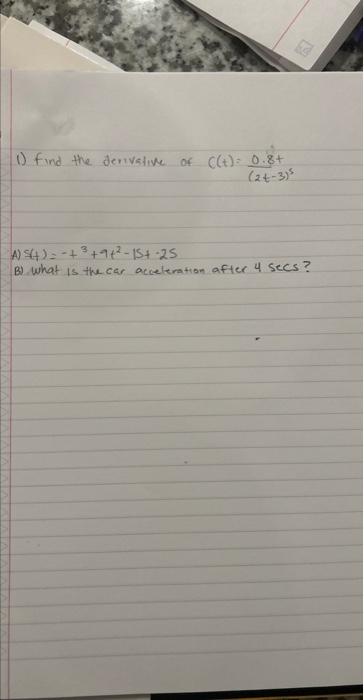 1) find the derivative of C(t) = 0.8t
(2t-3)⁵
A) S(t) = -t³+9t²-15t-25
B) what is the car acceleration after 4 secs?